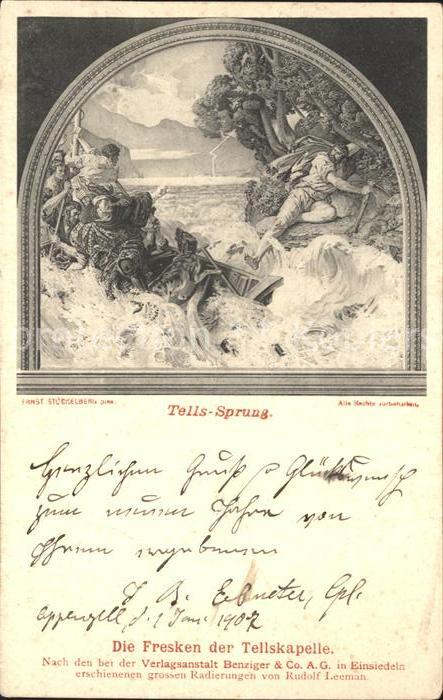 ERNST STÜCKELBERG pinx.
Alle Rechte vorbehalten.
Tells-Sprung.
Herzlichen Gruß & Glückwunsch
zum neuen Jahre von
Ihrem ergebenen
J. B. Ebneter, Cpl.
Appenzell, d. 1 Jan. 1907
Die Fresken der Tellskapelle.
Nach den bei der Verlagsanstalt Benziger & Co. A. G. in Einsiedeln
erschienenen grossen Radierungen von Rudolf Leeman.